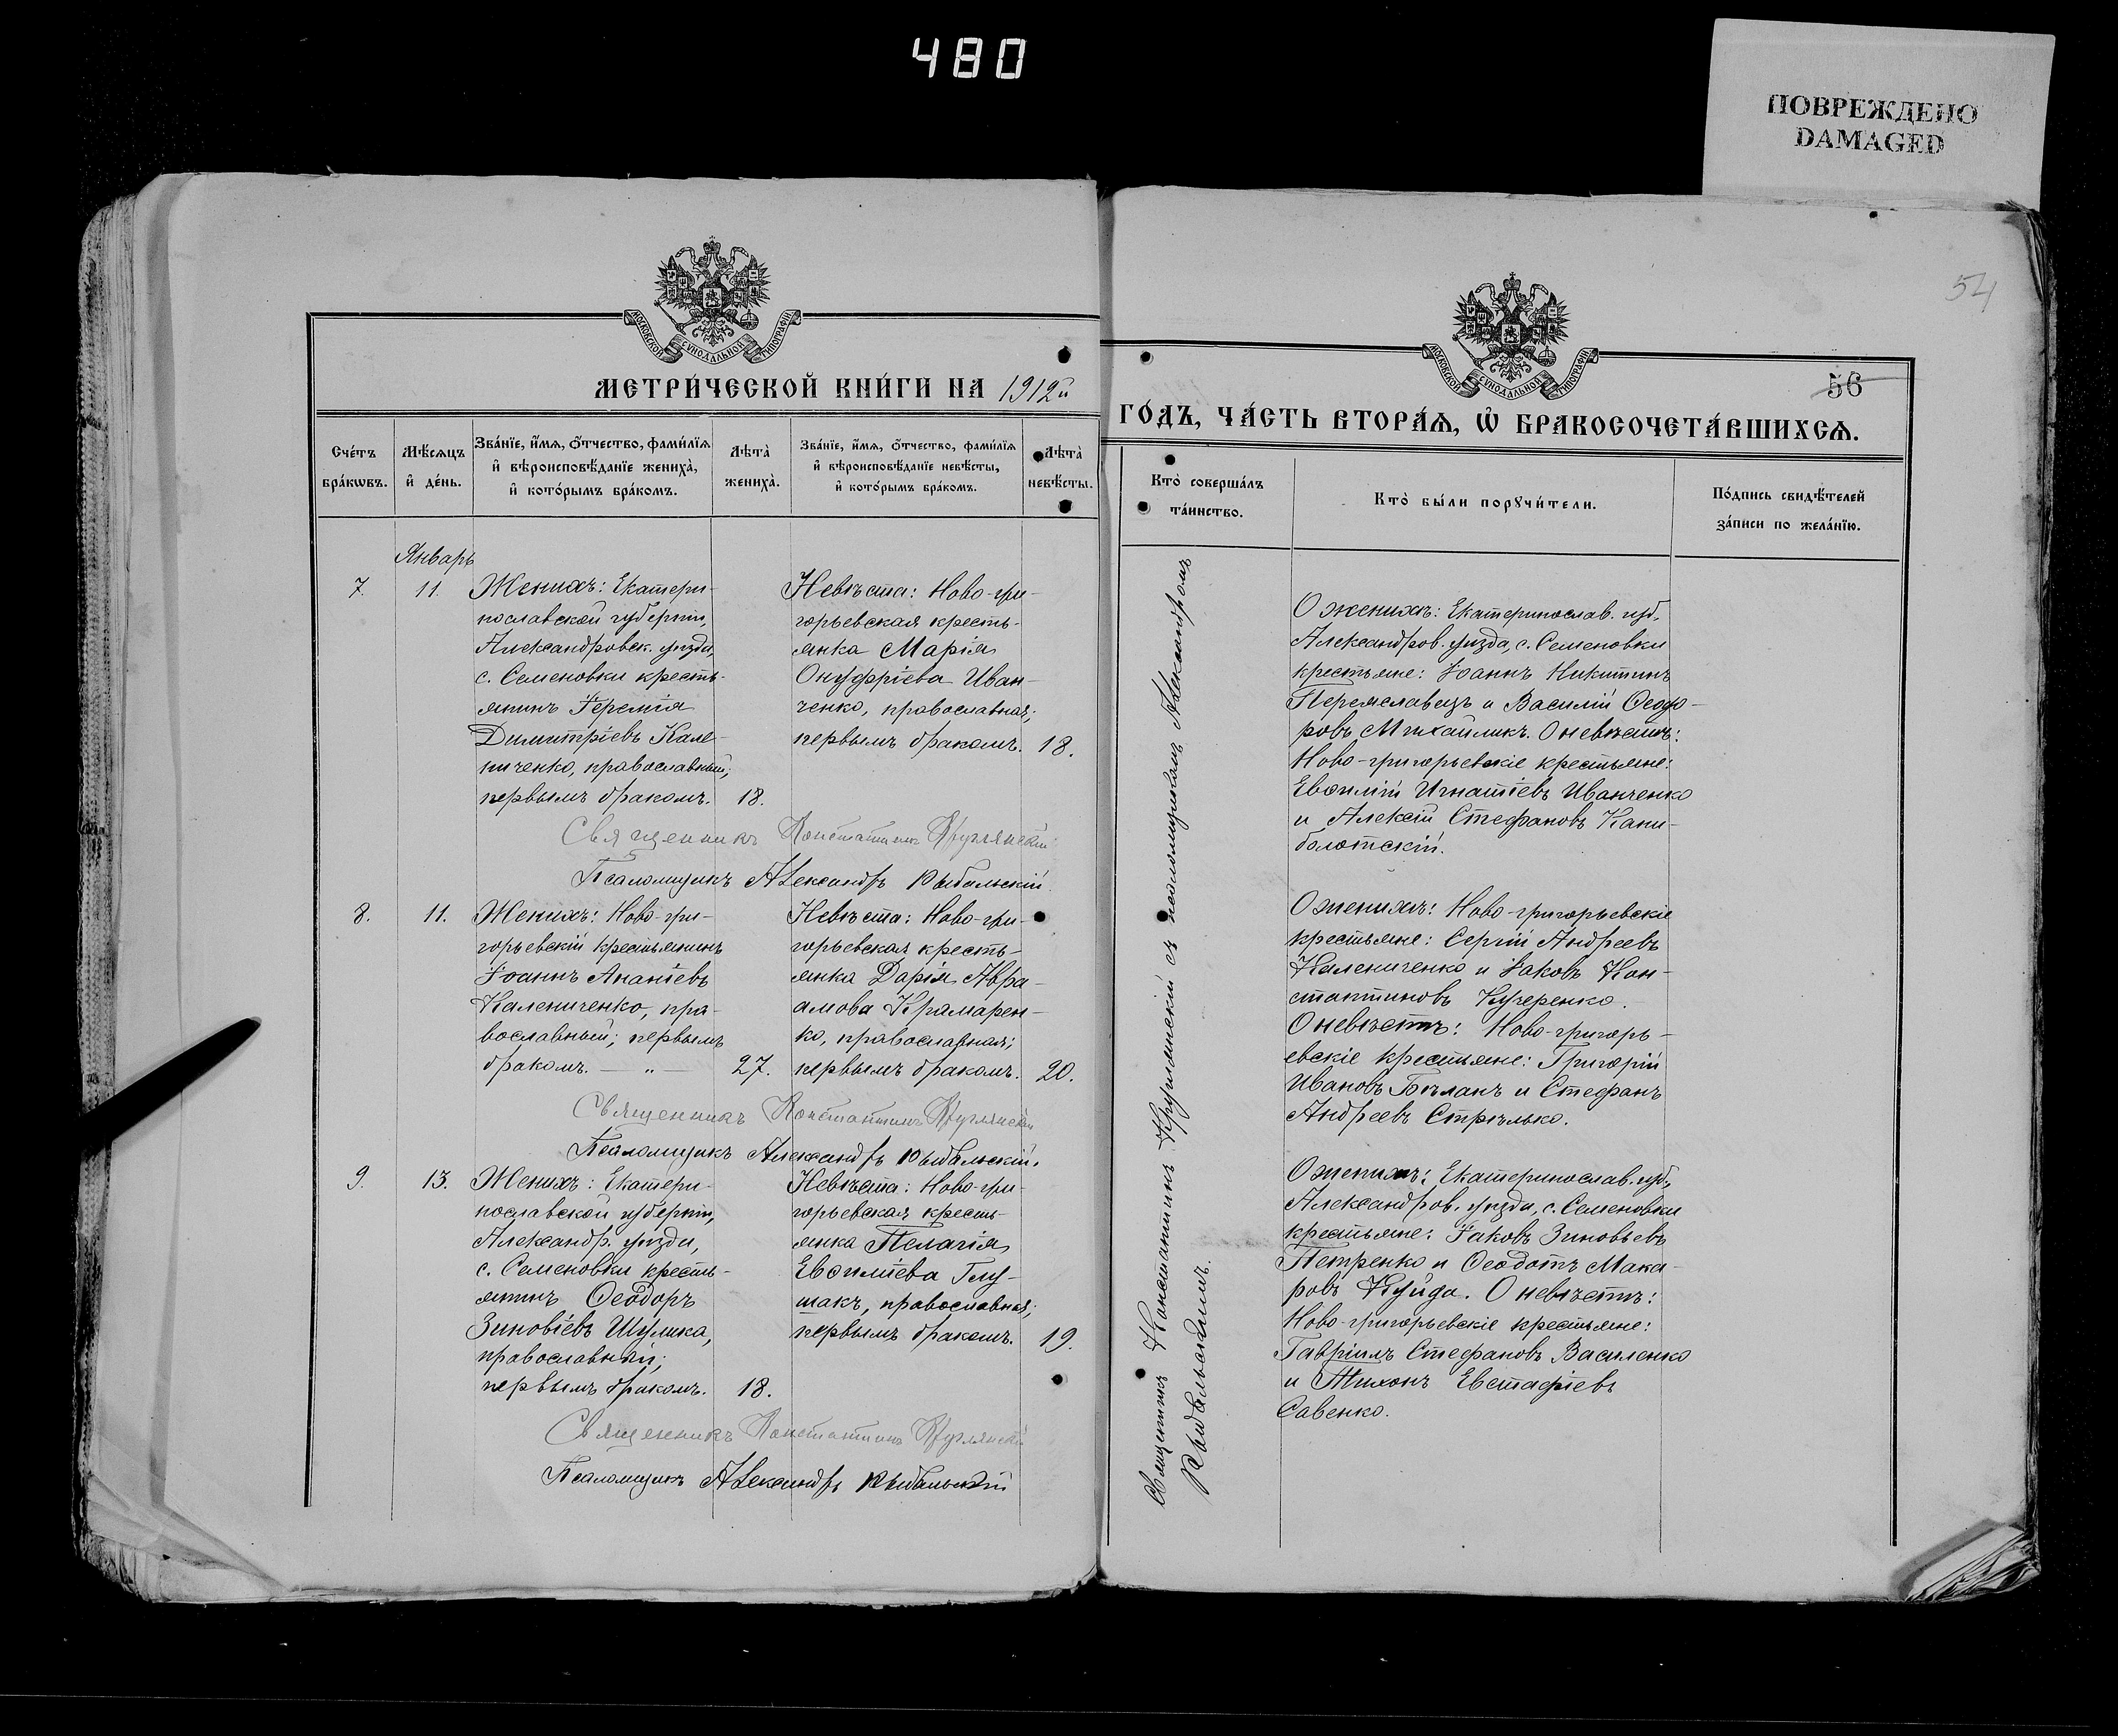 480
ПОВРЕЖДЕНО
DAMAGED
54
МОСКОВСКОЙ СѴНОДАЛЬНОЙ ТИПОГРАФІИ
МЕТРИ́ЧЕСКОЙ КНИ́ГИ НА 1912й
Сче́тъ бра́кѡвъ.
Мѣ́сѧцъ и҆ де́нь.
Зва́нїе, и҆́мѧ, ѻ҆́тчество, фами́лїѧ и҆ вѣроисповѣ́данїе жениха̀, и҆ кото́рымъ бра́комъ.
Лѣта̀ жениха̀.
Зва́нїе, и҆́мѧ, ѻ҆́тчество, фами́лїѧ и҆ вѣроисповѣ́данїе невѣ́сты, и҆ кото́рымъ бра́комъ.
Лѣта̀ невѣ́сты.
Январь
7.
11.
Женихъ: Екатери-
нославской губерніи,
Александровск. уѣзда,
с. Семеновки кресть-
янинъ Іеремія
Димитріевъ Кале-
ниченко, православный;
первымъ бракомъ. 18.
Невѣста: Ново-гри-
горьевская кресть-
янка Марія
Онуфріева Иван-
ченко, православная;
первымъ бракомъ. 18.
Священникъ Константинъ Круглянскій
Псаломщикъ Александръ Рыбальскій
8.
11.
Женихъ: Ново-гри-
горьевскій крестьянинъ
Іоаннъ Ананіевъ
Калениченко, пра-
вославный; первымъ
бракомъ. — „ — 27.
Невѣста: Ново-гри-
горьевская кресть-
янка Дарія Авра-
амова Крамарен-
ко, православная;
первымъ бракомъ. 20.
Священникъ Константинъ Круглянскій
Псаломщикъ Александръ Рыбальскій.
9.
13.
Женихъ: Екатери-
нославской губерніи,
Александр. уѣзда,
с. Семеновки кресть-
янинъ Ѳеодоръ
Зиновіевъ Шулика,
православный;
первымъ бракомъ. 18.
Невѣста: Ново-гри-
горьевская кресть-
янка Пелагія
Евѳиміева Глу-
шакъ, православная;
первымъ бракомъ. 19.
Священникъ Константинъ Круглянскій
Псаломщикъ Александръ Рыбальскій
МОСКОВСКОЙ СѴНОДАЛЬНОЙ ТИПОГРАФІИ
56
ГО́ДЪ, ЧА́СТЬ ВТОРА́Ѧ, Ѡ҆ БРАКОСОЧЕТА́ВШИХСѦ.
Кто̀ соверша́лъ та́инство.
Кто̀ бы́ли порꙋчи́тели.
По́дпись свидѣ́телей за́писи по жела́нїю.
Священникъ Константинъ Круглянскій съ псаломщикомъ Александромъ
Рыбальскимъ.
О женихѣ: Екатеринослав. губ.,
Александров. уѣзда, с. Семеновки
крестьяне: Іоаннъ Никитинъ
Переяславецъ и Василій Ѳеодо-
ровъ Михайликъ. О невѣстѣ:
Ново-григорьевскіе крестьяне:
Евѳимій Игнатіевъ Иванченко
и Алексій Стефановъ Капи-
болотскій.
О женихѣ: Ново-григорьевскіе
крестьяне: Сергій Андреевъ
Калениченко и Іаковъ Кон-
стантиновъ Кучеренко.
О невѣстѣ: Ново-григорь-
евскіе крестьяне: Григорій
Ивановъ Бѣланъ и Стефанъ
Андреевъ Стрѣлько.
О женихѣ: Екатеринослав. губ.,
Александров. уѣзда, с. Семеновки
крестьяне: Іаковъ Зиновьевъ
Петренко и Ѳеодотъ Мака-
ровъ Куйда. О невѣстѣ:
Ново-григорьевскіе крестьяне:
Гавріилъ Стефановъ Василенко
и Тихонъ Евстафіевъ
Савенко.